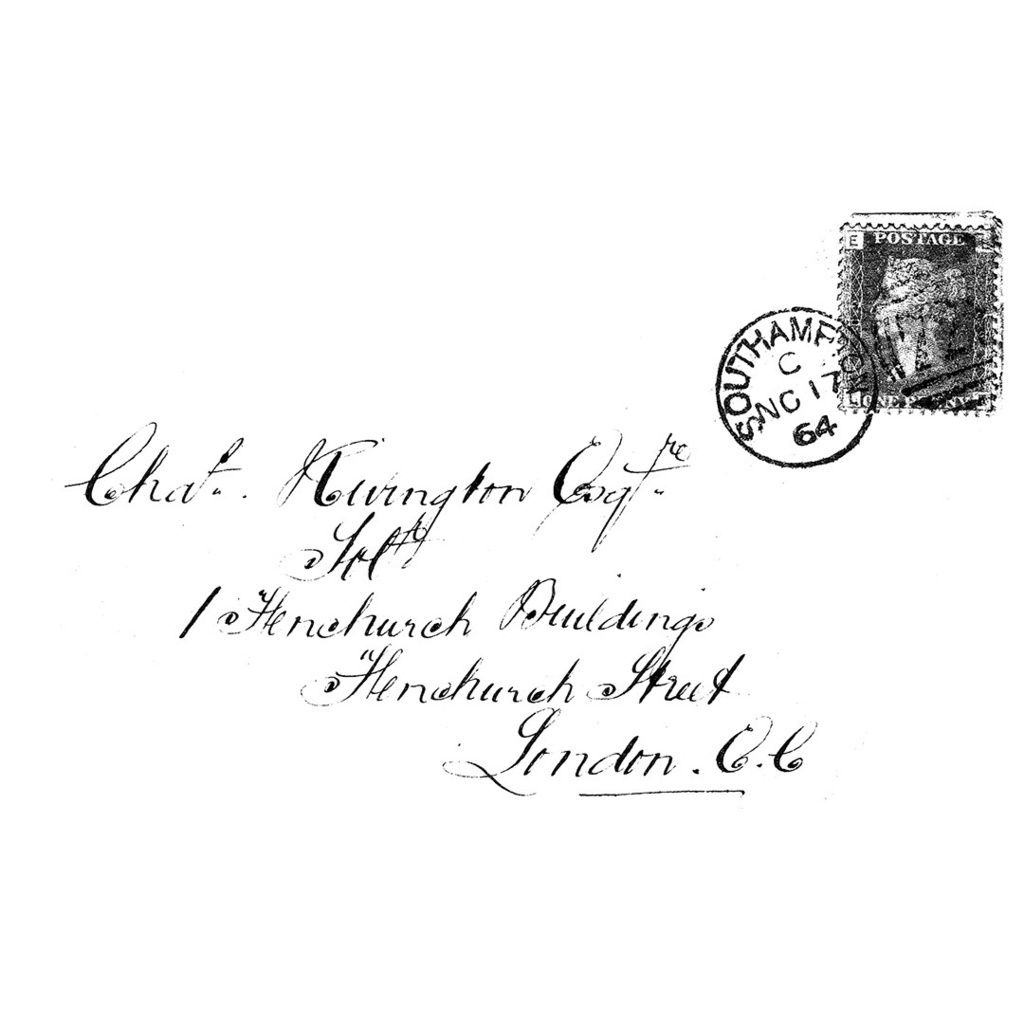 E POSTAGE
SOUTHAMPTON
C
NO 17
64
ONE PENNY
Chas. Rivington Esqre
Solr
1 Fenchurch Buildings
Fenchurch Street
London. E.C